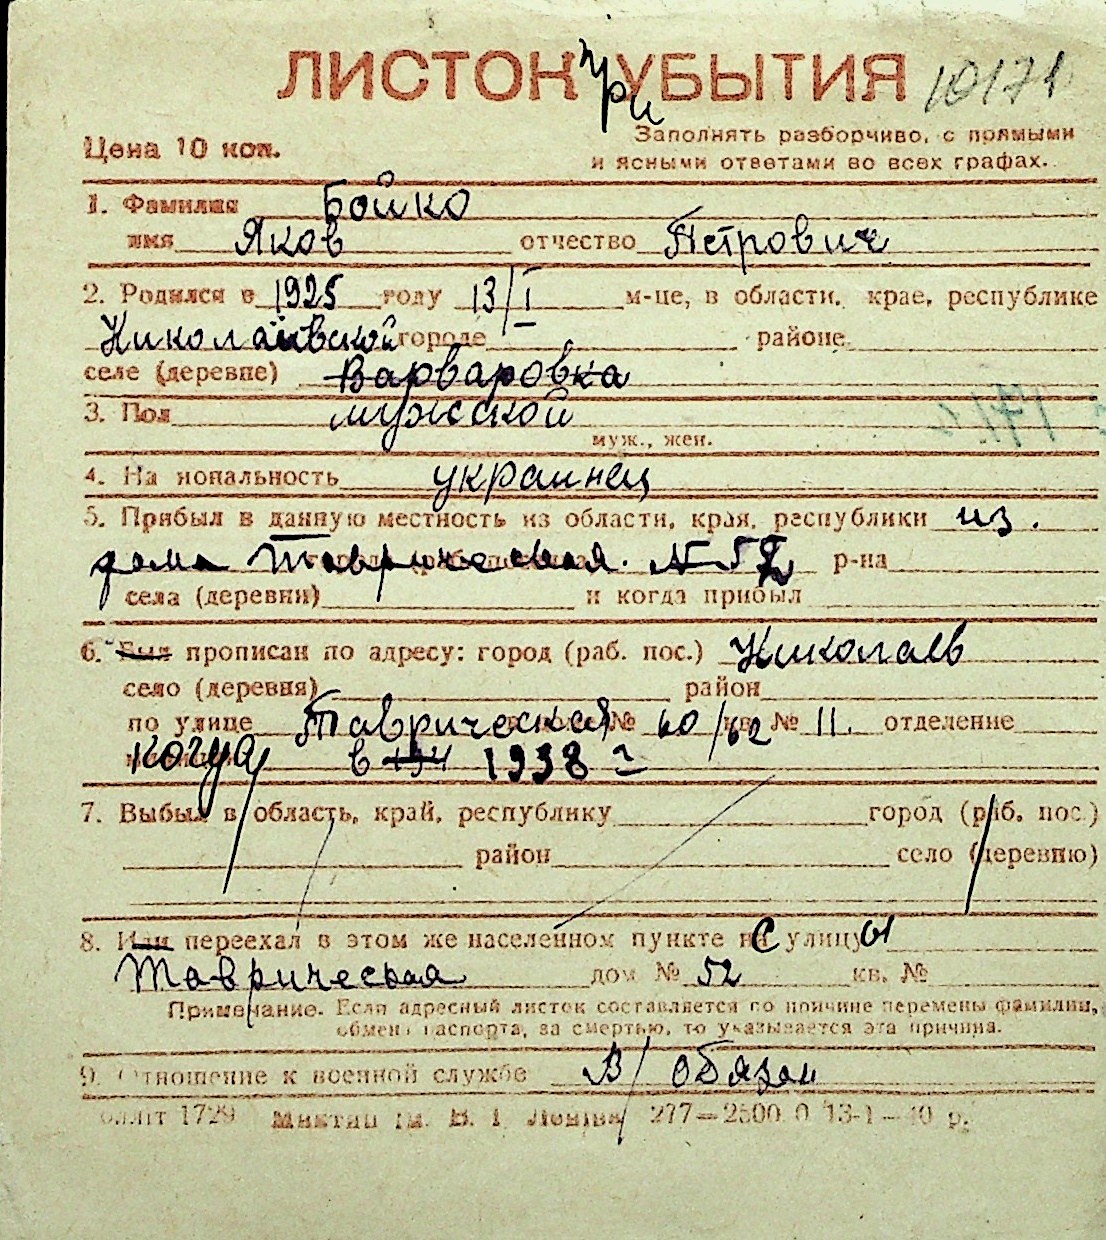 ЛИСТОК при УБЫТИЯ 10171
Цена 10 коп.
Заполнять разборчиво, с прямыми
и ясными ответами во всех графах.
1. Фамилия Бойко
имя Яков отчество Петрович
2. Родился в 1925 году 13/I м-це, в области, крае, республике
Николаевской городе районе
селе (деревне) Варваровка
3. Пол мужской
муж., жен.
4. На нональность украинец
5. Прибыл в данную местность из области, края, республики из.
дома Таврическая. № 52 р-на
села (деревни) и когда прибыл
6. Был прописан по адресу: город (раб. пос.) Николаев
село (деревня) район
по улице Таврическая № 60/62 кв. № 11. отделение
когда в 194 1938 г
7. Выбыл в область, край, республику город (раб. пос.)
район село (деревню)
8. Или переехал в этом же населенном пункте с улицы
Таврическая дом № 52 кв. №
Примечание. Если адресный листок составляется по причине перемены фамилии,
обмена паспорта, за смертью, то указывается эта причина.
9. Отношение к военной службе В/обязан
1729 В. І. Леніна 277—2500.0 13-1—40 р.